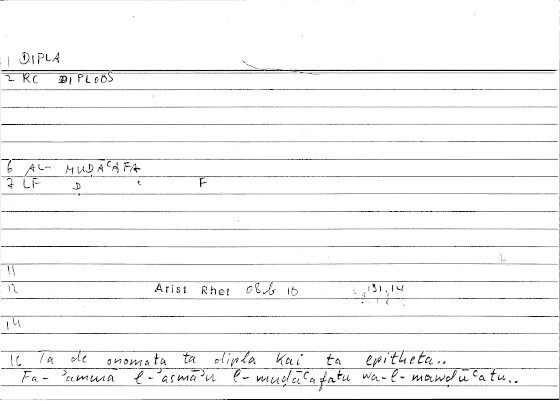 1 DIPLA
2 RC DIPLOOS
6 AL- MUḌĀʿAFA
7 LF Ḍ ʿ F
11
12 Arist Rhet 08b 10 131,14
14
16 Ta de onomata ta dipla kai ta epitheta..
Fa-ʾammā l-ʾasmāʾu l-muḍāʿafatu wa-l-mawḍūʿatu..